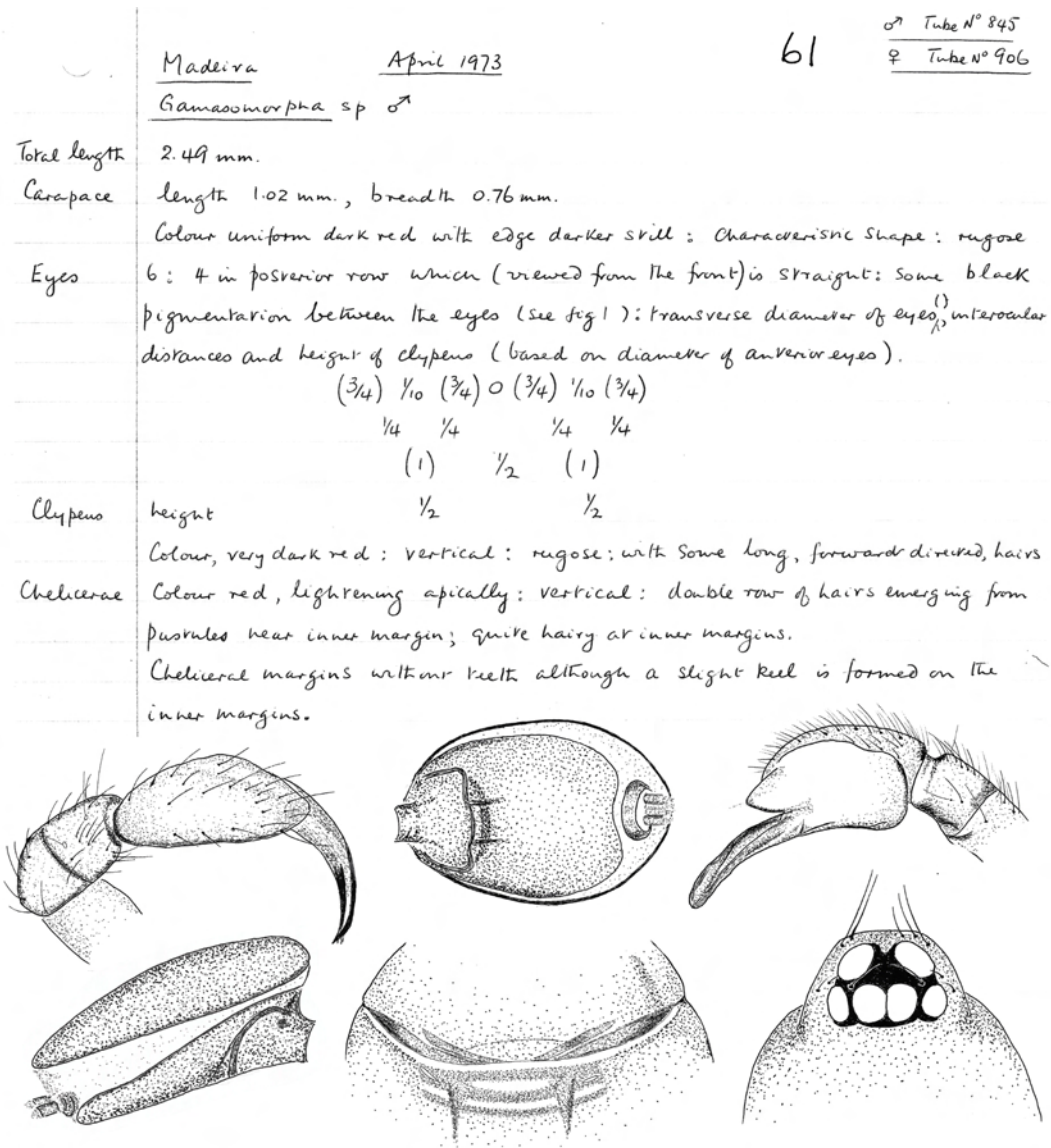 ♂ Tube Nº 845
♀ Tube Nº 906
61
Madeira April 1973
Gamasomorpha sp ♂
Total length 2.49 mm.
Carapace length 1.02 mm., breadth 0.76 mm.
Colour uniform dark red with edge darker still : characteristic shape : rugose
Eyes 6 : 4 in posterior row which (viewed from the front) is straight : Some black
pigmentation between the eyes (see fig 1) : transverse diameter of eyes (), interocular
distances and height of clypeus (based on diameter of anterior eyes).
(3/4) 1/10 (3/4) 0 (3/4) 1/10 (3/4)
1/4 1/4 1/4 1/4
(1) 1/2 (1)
Clypeus height 1/2 1/2
Colour, very dark red : vertical : rugose; with some long, forward directed, hairs
Chelicerae Colour red, lightening apically : vertical : double row of hairs emerging from
pustules near inner margin; quite hairy at inner margins.
Cheliceral margins without teeth although a slight keel is formed on the
inner margins.